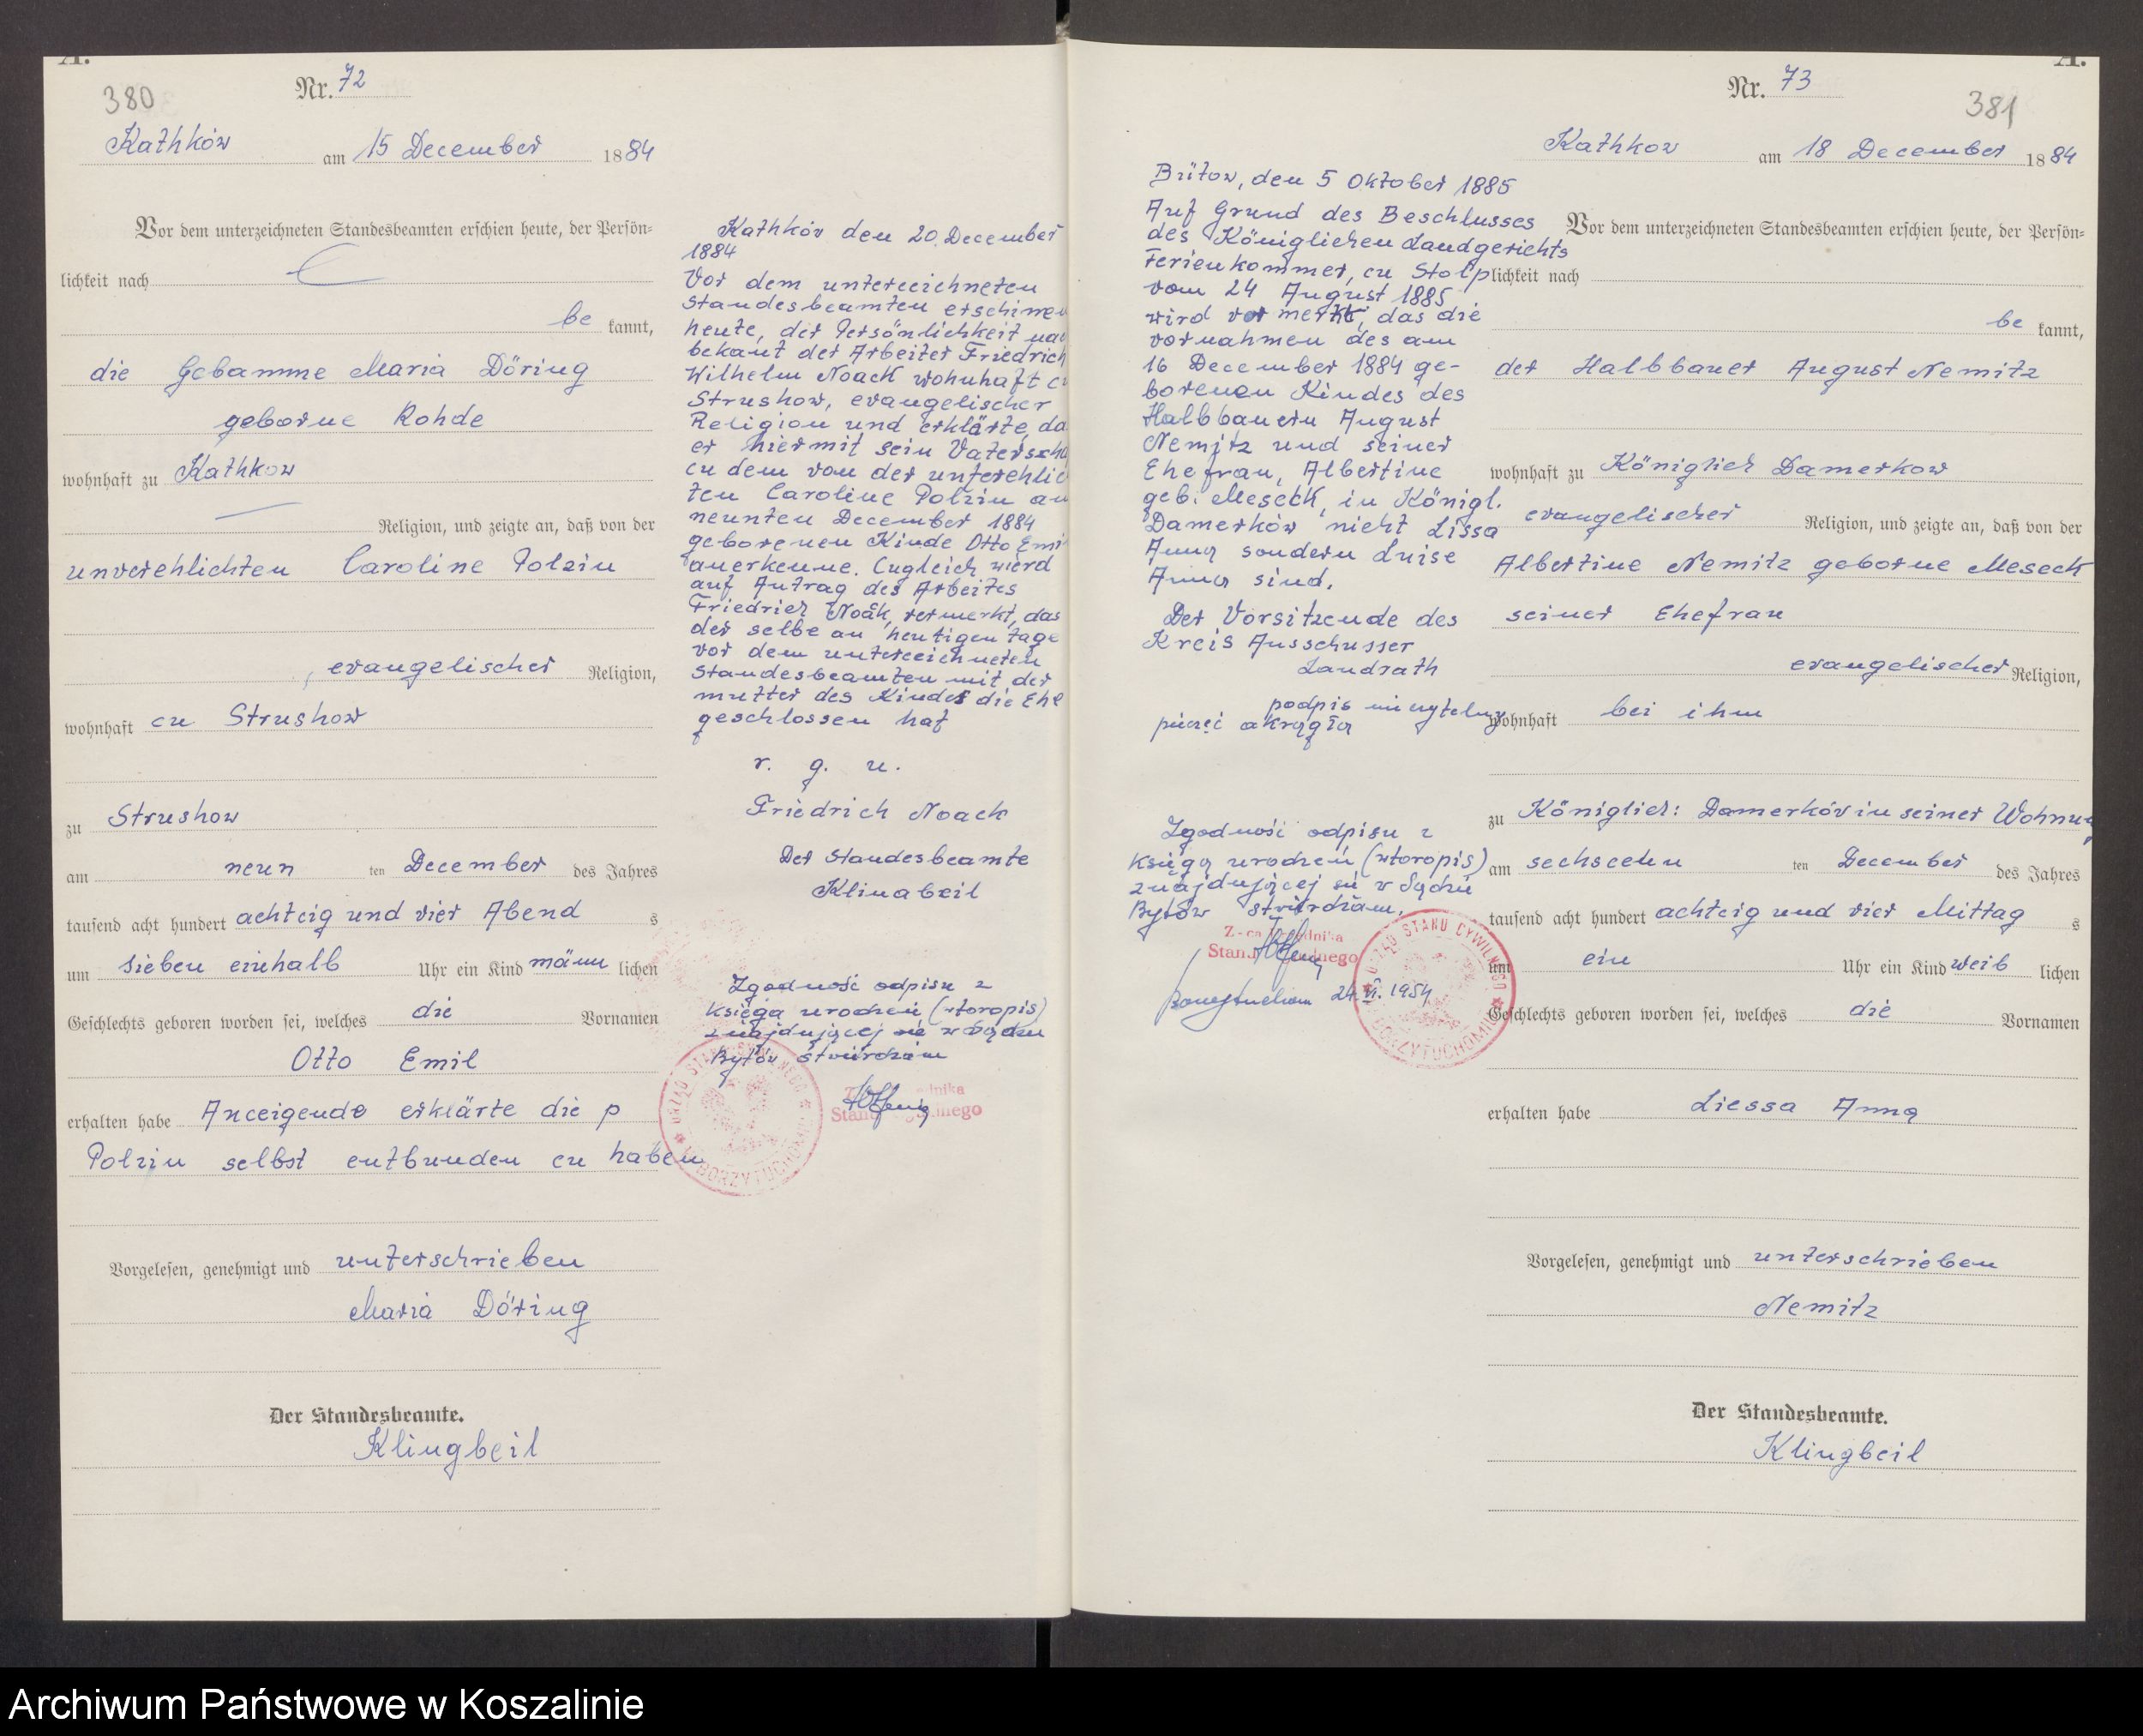 A.
380
Nr. 72
Kathków am 15 December 1884
Vor dem unterzeichneten Standesbeamten erschien heute, der Persön-
lichkeit nach
be kannt,
die Gebamme Maria Döring
geborne Rohde
wohnhaft zu Kathkow
Religion, und zeigte an, daß von der
unverehlichten Caroline Polzin
, evangelischer Religion,
wohnhaft cu Strushow
zu Strushow
am neun ten December des Jahres
tausend acht hundert achtcig und vier Abend s
um sieben einhalb Uhr ein Kind männ lichen
Geschlechts geboren worden sei, welches die Vornamen
Otto Emil
erhalten habe Anceigende erklärte die p
Polzin selbst entbunden cu haben
Vorgelesen, genehmigt und unterschrieben
Maria Döring
Der Standesbeamte.
Klingbeil
Kathków den 20 December
1884
Vor dem untereeichneten
Standesbeamten erschinen
heute, der Persönlichkeit nac
bekant der Arbeiter Friedrich
Wilhelm Noack wohnhaft c
Strushow, evangelischer
Religion und erklärte, da
er hiermit sein Vaterscha
cu dem von der unterehlic
ten Caroline Polzin an
neunten December 1884
geborenen Kinde Otto Emi
anerkenne. Cugleich wierd
auf Antrag des Arbeites
Friedrich Noak, vermerkt, das
der selbe an heutigen tage
vor dem untereeichneten
Standesbeamten mit der
mutter des Kindes die Ehe
geschlossen hat
v. g. u.
Friedrich Noack
Der Standesbeamte
Klinabeil
Zgodność odpisu z
księgą urodzeń (wtoropis)
znajdującej się w Sądzie
Bytów stwierdzam
URZĄD STANU CYWILNEGO
BORZYTUCHOM
Stanu Cywilnego
A.
Nr. 73
381
Kathkow am 18 December 1884
Bütow, den 5 Oktober 1885
Auf Grund des Beschlusses
des Königlichen Landgerichts
Ferienkommer, cu Stolp
vom 24 August 1885
wird vor merkt, das die
vornahmen des am
16 December 1884 ge-
borenen Kindes des
Halbbauern August
Nemitz und seiner
Ehefrau, Albertine
geb. Meseck, in Königl.
Damerków nicht Lissa
Anna sondern Luise
Anna sind.
Der Vorsitzende des
Kreis Ausschusser
Landrath
podpis nieczytelny
pieczęć okrągła
Zgodność odpisu z
księgą urodzeń (wtoropis)
znajdującej się w Sądzie
Bytów stwierdzam.
Z-ca Urzędnika
Stanu Cywilnego
Borzytuchom 24.VI.1954
URZĄD STANU CYWILNEGO
BORZYTUCHOM
Vor dem unterzeichneten Standesbeamten erschien heute, der Persön-
lichkeit nach
be kannt,
der Halbbauer August Nemitz
wohnhaft zu Königlich Damerkow
evangelischer Religion, und zeigte an, daß von der
Albertine Nemitz geborne Meseck
seiner Ehefrau
evangelischer Religion,
wohnhaft bei ihm
zu Königlich: Damerków in seiner Wohnung
am sechscehn ten December des Jahres
tausend acht hundert achtcig und vier Mittag s
um ein Uhr ein Kind weib lichen
Geschlechts geboren worden sei, welches die Vornamen
erhalten habe Liessa Anna
Vorgelesen, genehmigt und unterschrieben
Nemitz
Der Standesbeamte.
Klingbeil
Archiwum Państwowe w Koszalinie